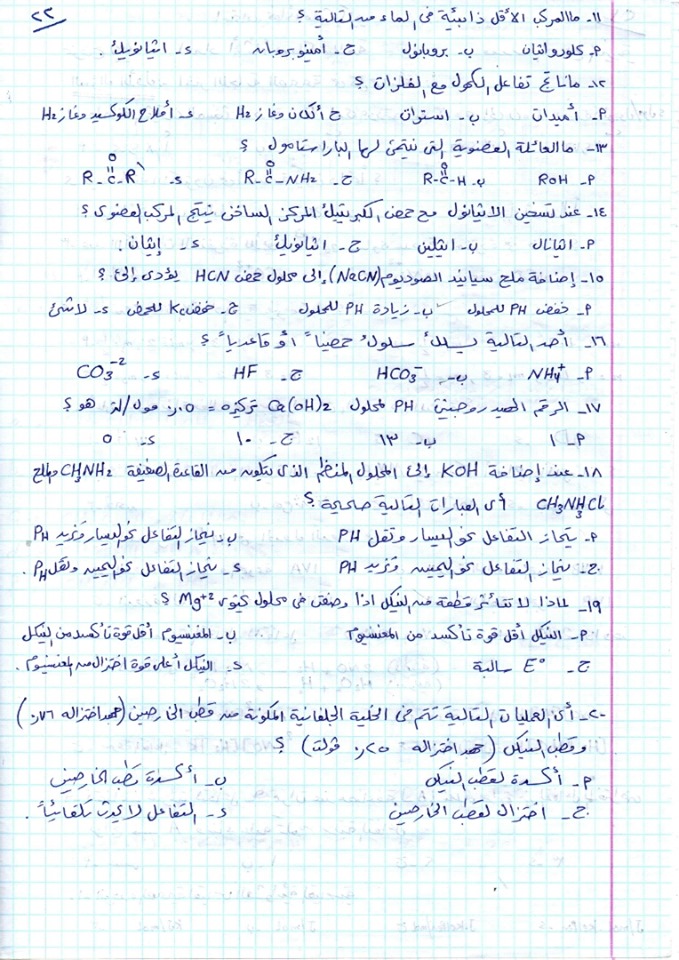 ٢٢
١١- ما المركب الأقل ذائبية في الماء من التالية ؟
٩- كلوروايثان ب- بروبانول ج- أمينو بروبان د- ايثانويك .
١٢- ما ناتج تفاعل الكحول مع الفلزات ؟
٩- أميدات ب- استرات ج- ألكان وغاز H2 د- أملاح الكوكسيد وغاز H2
١٣- ما العائلة العضوية التي ينتمي لها الباراسيتامول ؟
٩- ROH ب- R-C-H O ج- R-C-NH2 O د- R-C-R\ O
١٤- عند تسخين الايثانول مع حمض الكبريتيك المركز الساخن ينتج المركب العضوي ؟
٩- ايثانال ب- ايثلين ج- ايثانويك د- إيثان .
١٥- إضافة ملح سيانيد الصوديوم (NaCN) إلى محلول حمض HCN يؤدي إلى ؟
٩- خفض PH للمحلول ب- زيادة PH للمحلول ج- خفض Ka للحمض د- لا شئ
١٦- أحد التالية يسلك سلوكُ حمضياً أو قاعدياً ؟
٩- NH4+ ب- HCO3- ج- HF د- CO3-2
١٧- الرقم الهيدروجيني PH لمحلول (OH)2 تركيزه = ٠,٠٥ مول/لتر هو ؟
٩- ١ ب- ١٣ ج- ١٠ د- ٥
١٨- عند إضافة KOH إلى المحلول المنظم الذي يتكون من القاعدة الضعيفة CH3NH2 والملح
CH3NH3Cl أي العبارات التالية صحيحة ؟
٩- يتجاز التفاعل نحو اليسار وتقل PH ب- ينجاز التفاعل نحو اليسار وتزيد PH
ج- ينجاز التفاعل نحو اليمين وتزيد PH د- ينجاز التفاعل نحو اليمين وتقل PH .
١٩- لماذا لا تتأثر قطعة من النيكل اذا وضعت في محلول يحوي Mg+2 ؟
٩- النيكل أقل قوة تأكسد من المغنسيوم ب- المغنسيوم أقل قوة تأكسد من النيكل
ج- E° سالبة د- النيكل أعلى قوة اختزال من المغنسيوم .
٢٠- أي العمليات التالية تتم في الخلية الجلفانية المكونة من قطب الخارصين (جهد اختزاله ٠,٧٦)
وقطب النيكل (جهد اختزاله ٠,٢٥ فولت) ؟
٩- أكسدة لقطب النيكل ب- أكسدة قطب الخارصين
ج- اختزال لقطب الخارصين د- التفاعل لا يحدث تلقائياً .